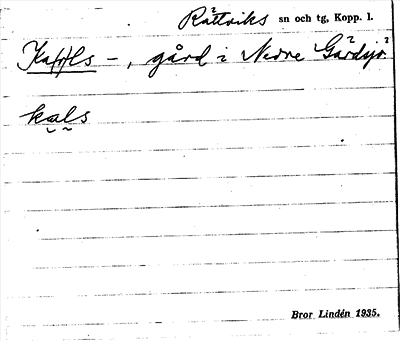 Rättviks sn och tg, Kopp. l.
Kappls -, gård i Nedre Gärdsjö.
kals
Bror Lindén 1935.